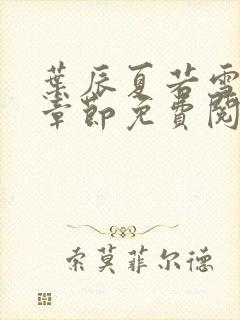 葉辰夏若雪
章節免費閱
索莫菲尔德